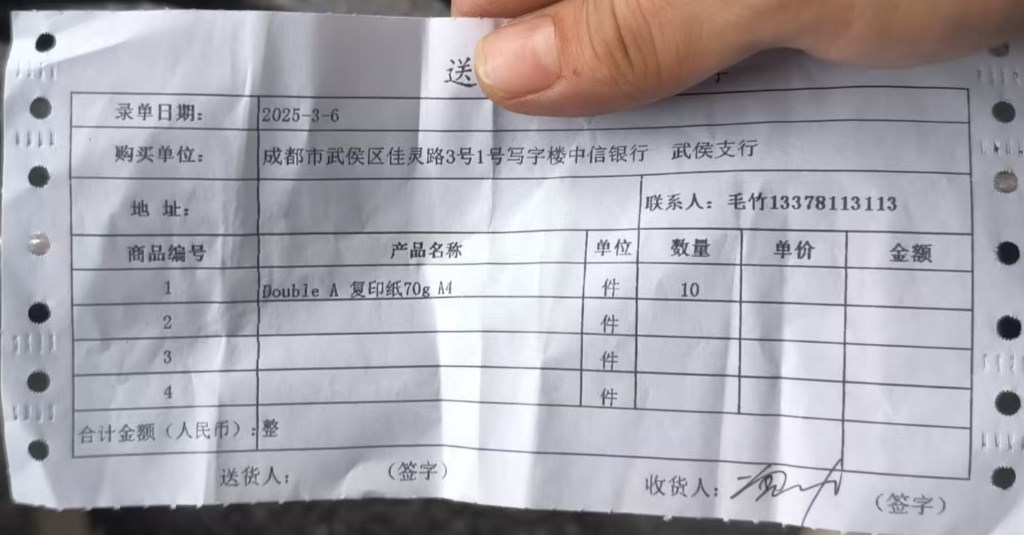 送
录单日期： 2025-3-6
购买单位： 成都市武侯区佳灵路3号1号写字楼中信银行 武侯支行
地 址： 联系人：毛竹13378113113
商品编号 产品名称 单位 数量 单价 金额
1 Double A 复印纸70g A4 件 10
2 件
3 件
4 件
合计金额（人民币）：整
送货人： （签字） 收货人： （签字）